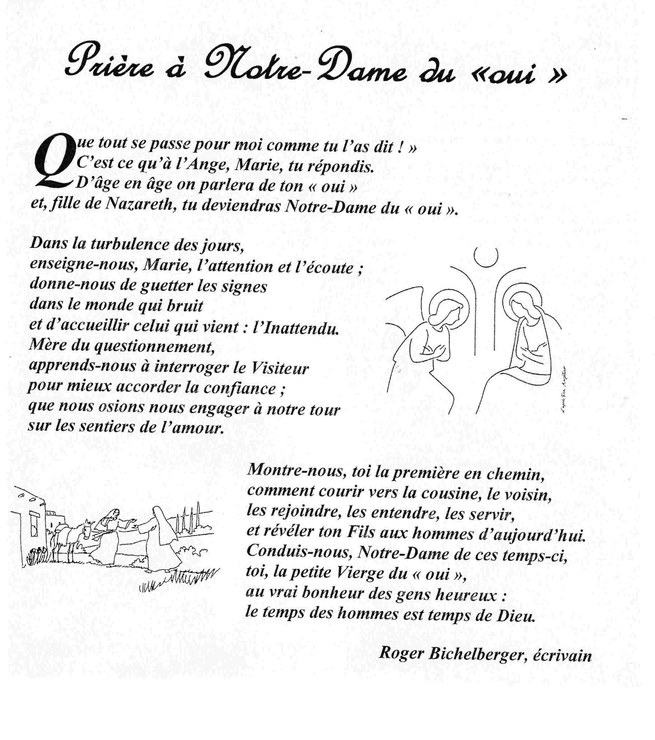 Prière à Notre-Dame du «oui »
Que tout se passe pour moi comme tu l'as dit ! »
C'est ce qu'à l'Ange, Marie, tu répondis.
D'âge en âge on parlera de ton « oui »
et, fille de Nazareth, tu deviendras Notre-Dame du « oui ».
Dans la turbulence des jours,
enseigne-nous, Marie, l'attention et l'écoute ;
donne-nous de guetter les signes
dans le monde qui bruit
et d'accueillir celui qui vient : l'Inattendu.
Mère du questionnement,
apprends-nous à interroger le Visiteur
pour mieux accorder la confiance ;
que nous osions nous engager à notre tour
sur les sentiers de l'amour.
d'après Fra Angelico
Montre-nous, toi la première en chemin,
comment courir vers la cousine, le voisin,
les rejoindre, les entendre, les servir,
et révéler ton Fils aux hommes d'aujourd'hui.
Conduis-nous, Notre-Dame de ces temps-ci,
toi, la petite Vierge du « oui »,
au vrai bonheur des gens heureux :
le temps des hommes est temps de Dieu.
Roger Bichelberger, écrivain